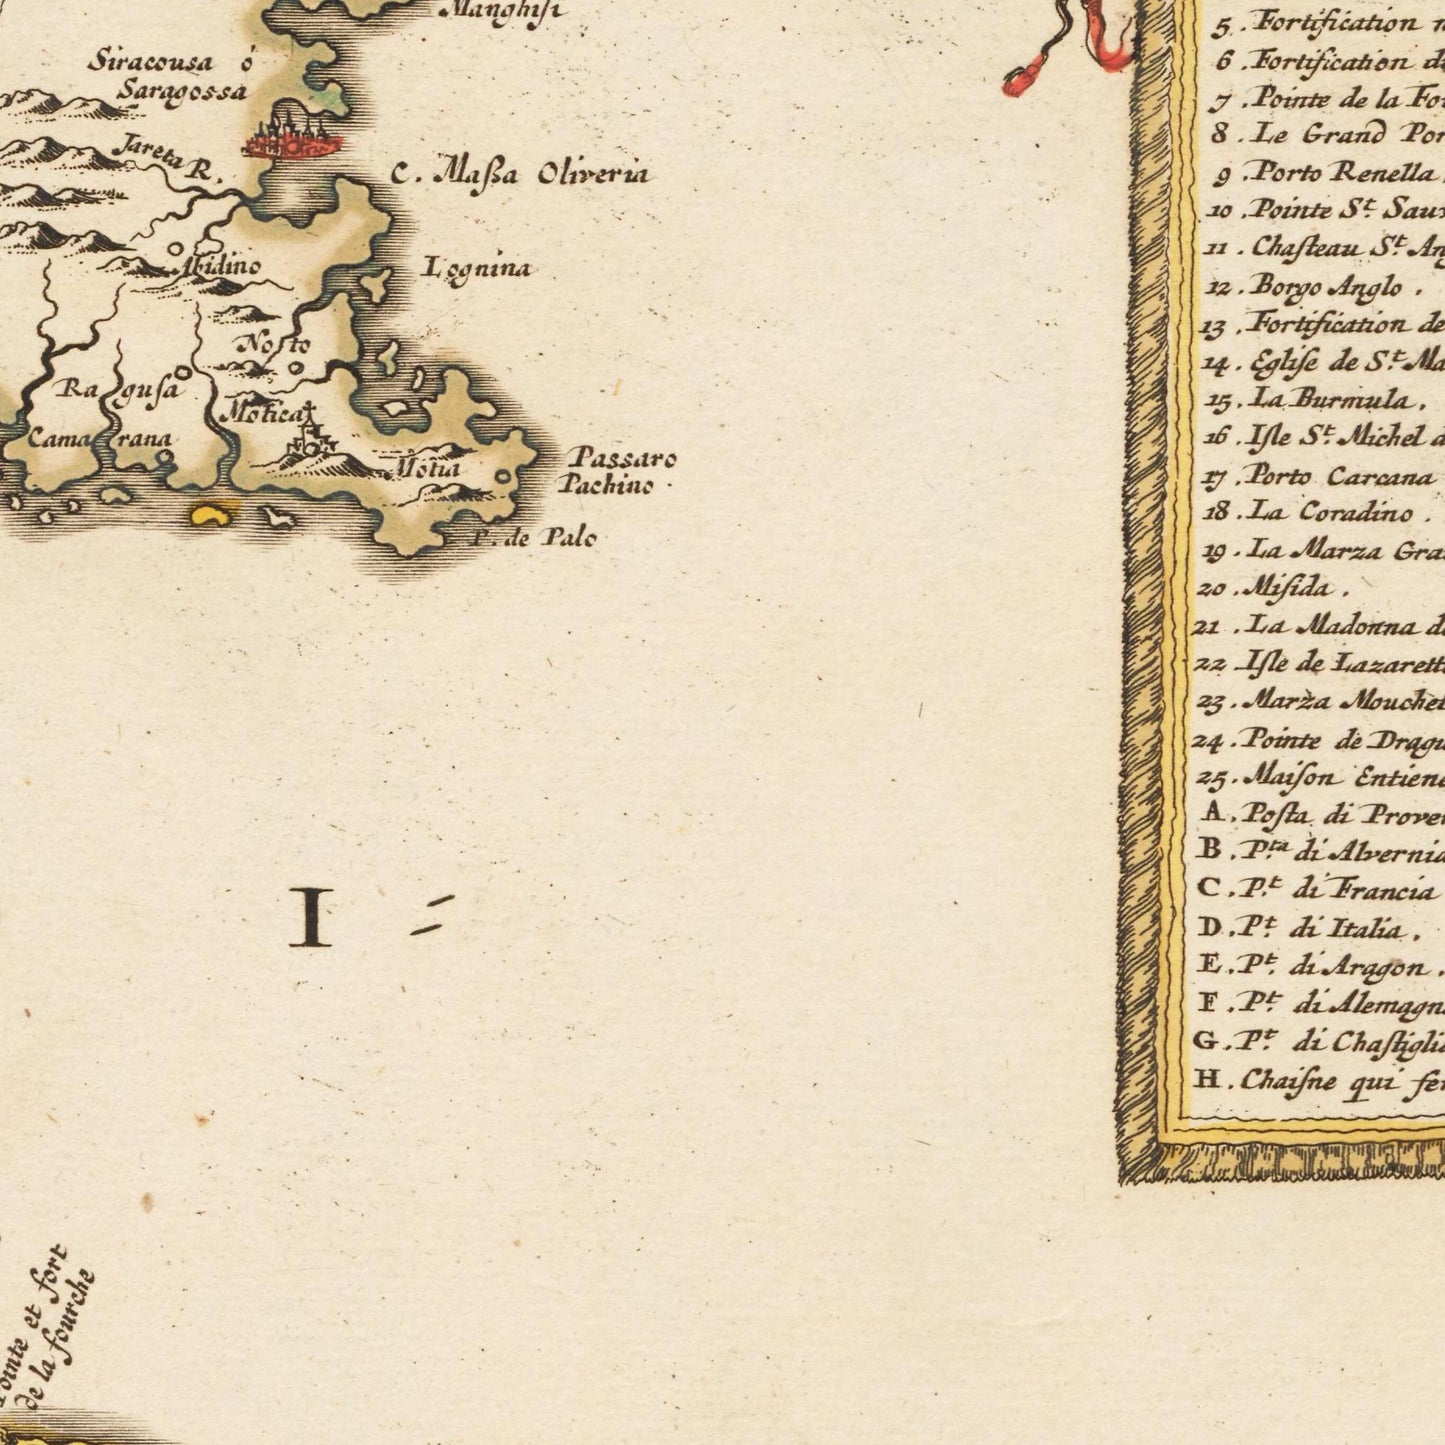 Manghisi
Siracousa ó
Saragossa
Jareta R.
C. Maſsa Oliveria
Abidino
Lognina
Nosto
Ragusa
Motica
Camarana
Motia
Passaro
Pachino
P. de Palo
I =
Pointe et fort
de la fourche
5. Fortification
6. Fortification
7. Pointe de la
8. Le Grand
9. Porto Renella
10. Pointe St.
11. Chaſteau St.
12. Borgo Anglo.
13. Fortification de
14. Egliſe de St.
15. La Burmula.
16. Iſle St. Michel
17. Porto Carcana
18. La Coradino.
19. La Marza
20. Miſida.
21. La Madonna
22. Iſle de
23. Marza
24. Pointe de
25. Maiſon
A. Poſta di
B. P.ta di
C. P.t di Francia
D. Pt. di Italia.
E. Pt. di Aragon.
F. Pt. di
G. Pt. di
H. Chaiſne qui